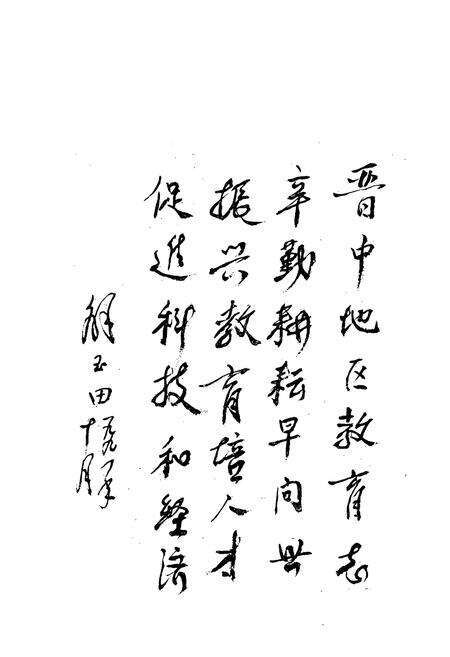 晋中地区教育志
辛勤耕耘早问世
振兴教育培人才
促进科技和经济
解玉田
一九九一年
十月